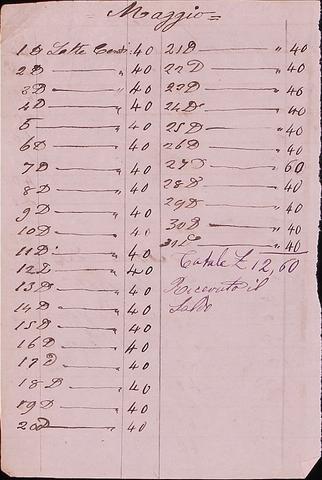 Maggio
1 D Latte Cent. 40
2 D " 40
3 D " 40
4 D " 40
5 " 40
6 D " 40
7 D " 40
8 D " 40
9 D " 40
10 D " 40
11 D " 40
12 D " 40
13 D " 40
14 D " 40
15 D " 40
16 D " 40
17 D " 40
18 D " 40
19 D " 40
20 D " 40
21 D " 40
22 D " 40
23 D " 40
24 D " 40
25 D " 40
26 D " 40
27 D " 60
28 D " 40
29 D " 40
30 D " 40
31 D " 40
Totale £ 12,60
Ricevuto il
Saldo